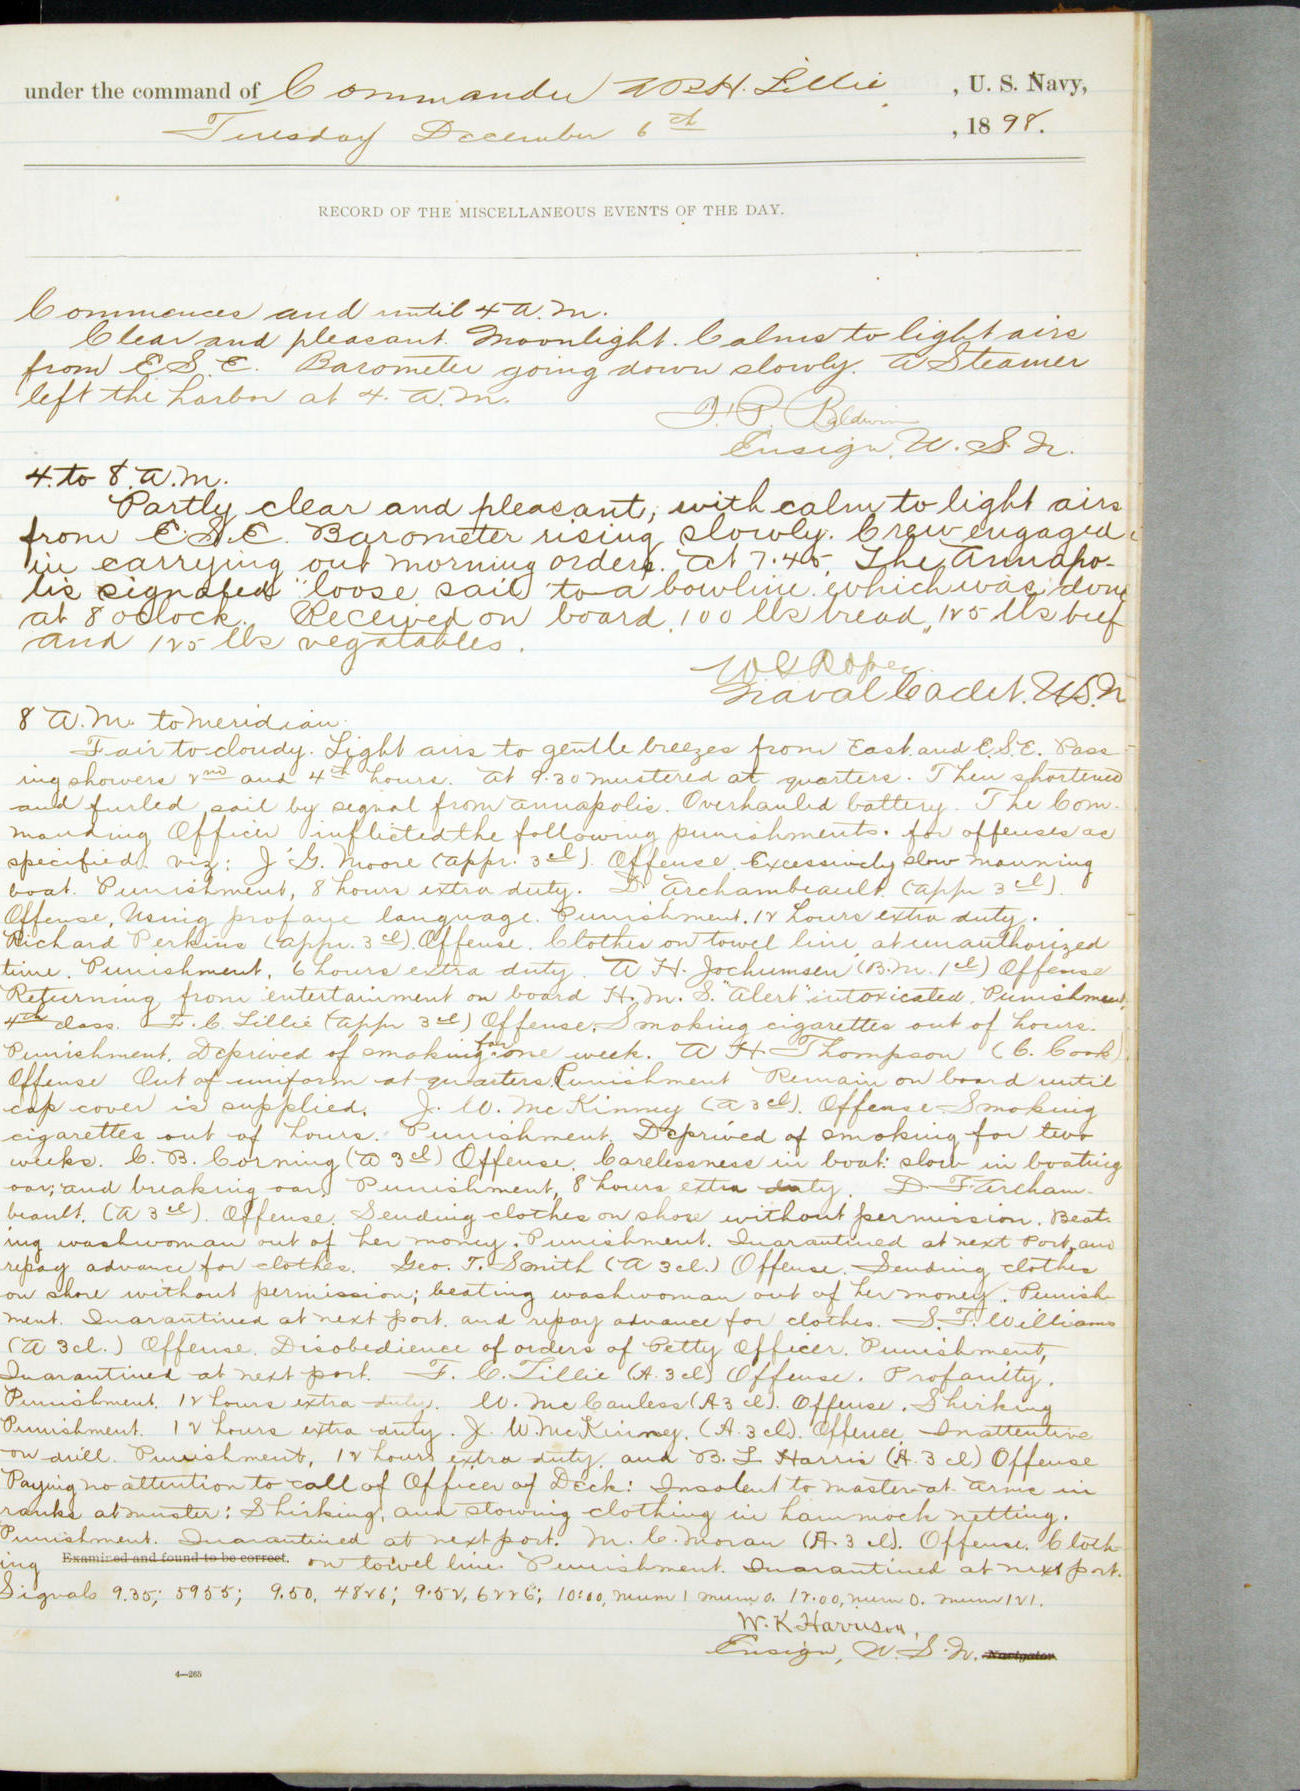 under the command of Commander A. B. H. Lillie, U. S. Navy,
Tuesday December 6th, 1898.
RECORD OF THE MISCELLANEOUS EVENTS OF THE DAY.
Commences and until 4 A.M.
Clear and pleasant. Moonlight. Calms to light airs
from E.S.E. Barometer going down slowly. A Steamer
left the harbor at 4. A.M.
Baldwin
Ensign, U.S.N.
4. to 8. A.M.
Partly clear and pleasant, with calm to light airs
from E.S.E. Barometer rising slowly. Crew engaged
in carrying out morning orders. At 7.45, The Annapo-
lis signaled "loose sail to a bowline" which was done
at 8 oclock. Received on board 100 lbs bread, 125 lbs beef
and 125 lbs vegatables.
Naval Cadet. U.S.N
8 A.M. to meridian.
Fair to cloudy. Light airs to gentle breezes from East and E.S.E. Pass-
ing showers 2nd and 4th hours. At 9.30 mustered at quarters. Then shortened
and furled sail by signal from Annapolis. Overhauled battery. The Com-
manding Officer inflicted the following punishments. for offenses as
specified. viz: J. G. Moore (appr. 3cl). Offense. Excessively slow manning
boat. Punishment, 8 hours extra duty. D. Archambeault. (appr 3cl).
Offense, Using profane language. Punishment. 12 hours extra duty.
Richard Perkins (appr. 3cl). Offense. Clothes on towel line at unauthorized
time. Punishment. 6 hours extra duty. A. H. Jochumsen (B.M. 1cl) Offense
Returning from entertainment on board H.M.S. "Alert" intoxicated. Punishment.
4th class. F. C. Lillie (appr 3cl) Offense. Smoking cigarettes out of hours.
Punishment. Deprived of smoking for one week. A H Thompson (C. Cook).
Offense Out of uniform at quarters. Punishment Remain on board until
cap cover is supplied. J. W. McKinney (A 3cl). Offense Smoking
cigarettes out of hours. Punishment. Deprived of smoking for two
weeks. C. B. Corning (A 3cl) Offense. Carelessness in boat: slow in boating
oar; and breaking oar. Punishment, 8 hours extra duty. D. F. Archam-
beault. (A 3cl). Offense. Sending clothes on shore without permission. Beat-
ing washwoman out of her money. Punishment. Quarantined at next Port, and
repay advance for clothes. Geo. T. Smith (A 3cl.) Offense. Sending clothes
on shore without permission; beating washwoman out of her money. Punish-
ment. Quarantined at next port. and repay advance for clothes. S. T. Williams
(A 3cl.) Offense. Disobedience of orders of Petty Officer. Punishment,
Quarantined at next port. F. C. Lillie (A. 3cl) Offense. Profanity.
Punishment. 12 hours extra duty. W. McCauless (A 3cl). Offense. Shirking
Punishment. 12 hours extra duty. J. W. McKinney. (A. 3cl). Offence Inattentive
on drill. Punishment, 12 hours extra duty. and B. L Harris (A. 3cl) Offense
Paying no attention to call of Officer of Deck: Insolent to master at arms in
ranks at muster: Shirking, and stowing clothing in hammock netting.
Punishment. Quarantined at next port. M. C. Moran (A. 3cl). Offense. Cloth-
ing Examined and found to be correct. on towel line. Punishment. Quarantined at next port.
Signals 9.35; 5955; 9.50, 4826; 9.52, 6226; 10:00, num 1 num 0. 12.00, num 0. num 121.
W. K Harrison,
Ensign, U.S.N. Navigator.
4—265